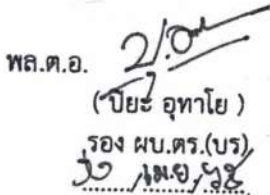 พล.ต.อ.
( ปิยะ อุทาโย )
รอง ผบ.ตร.(บร)
เม.ย.